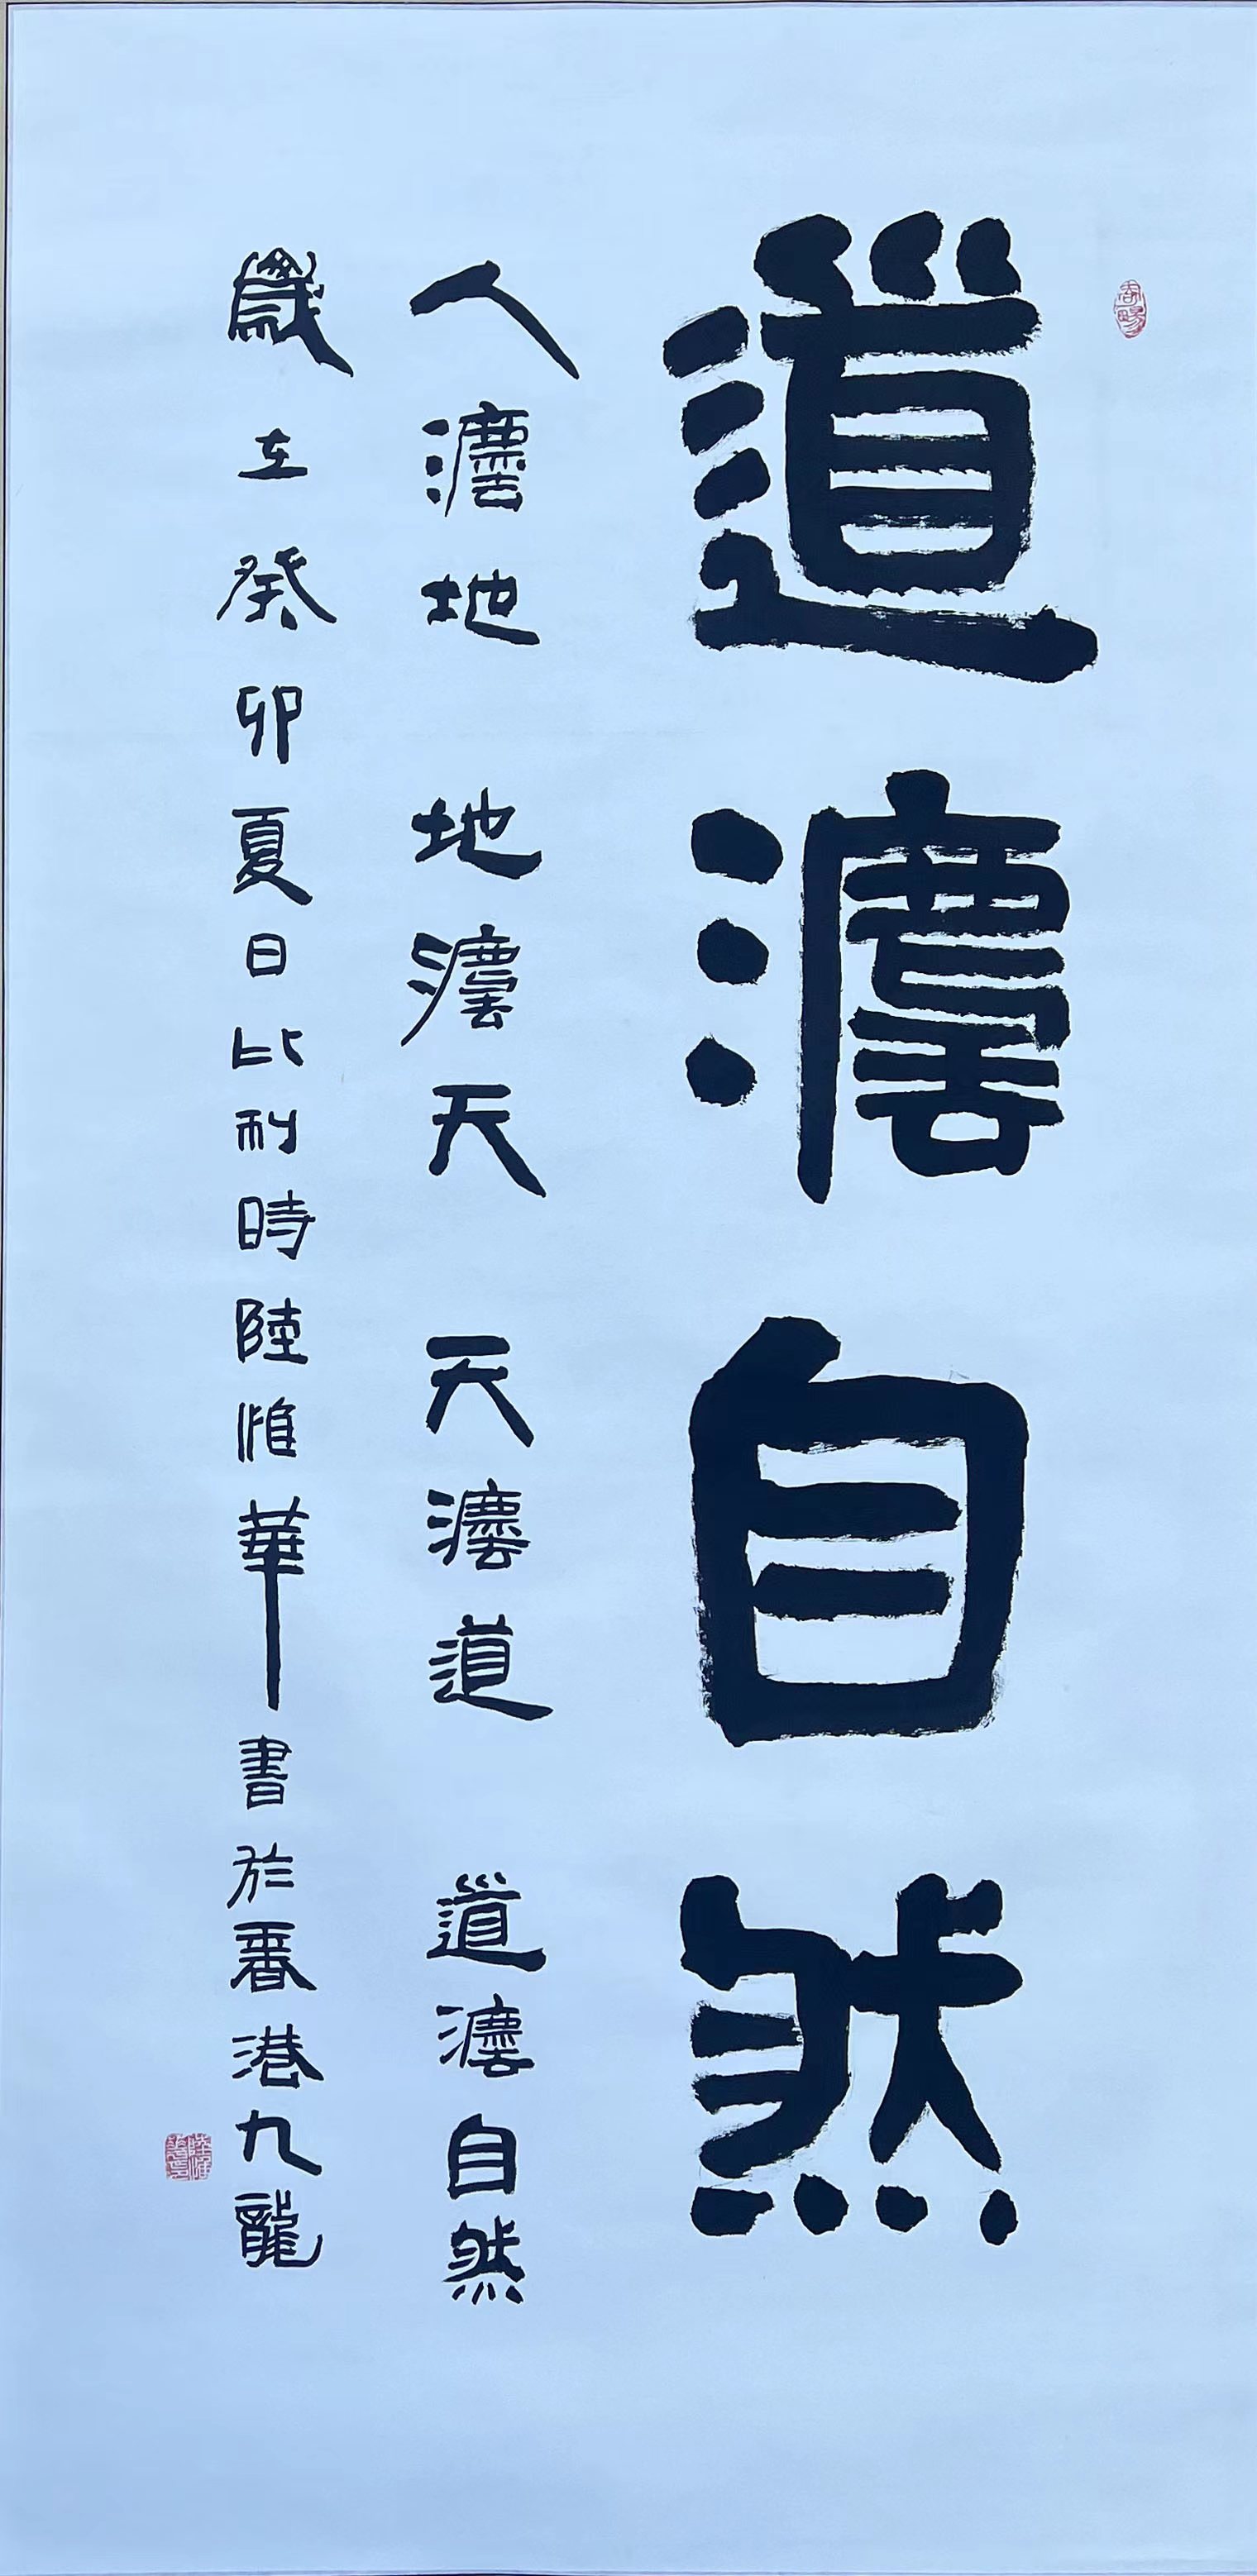 道灋自然
人灋地 地灋天 天灋道 道灋自然
歲在癸卯夏日比利時陸惟華書於香港九龍